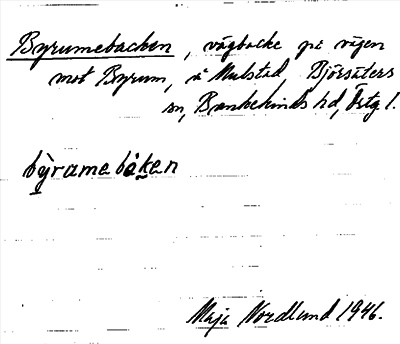 Byrumebacken, vägbacke på vägen
mot Byrum, å Mulstad, Björsäters
sn, Bankekinds hd, Östg l.
by̌ramebåken
Maja Nordlund 1946.